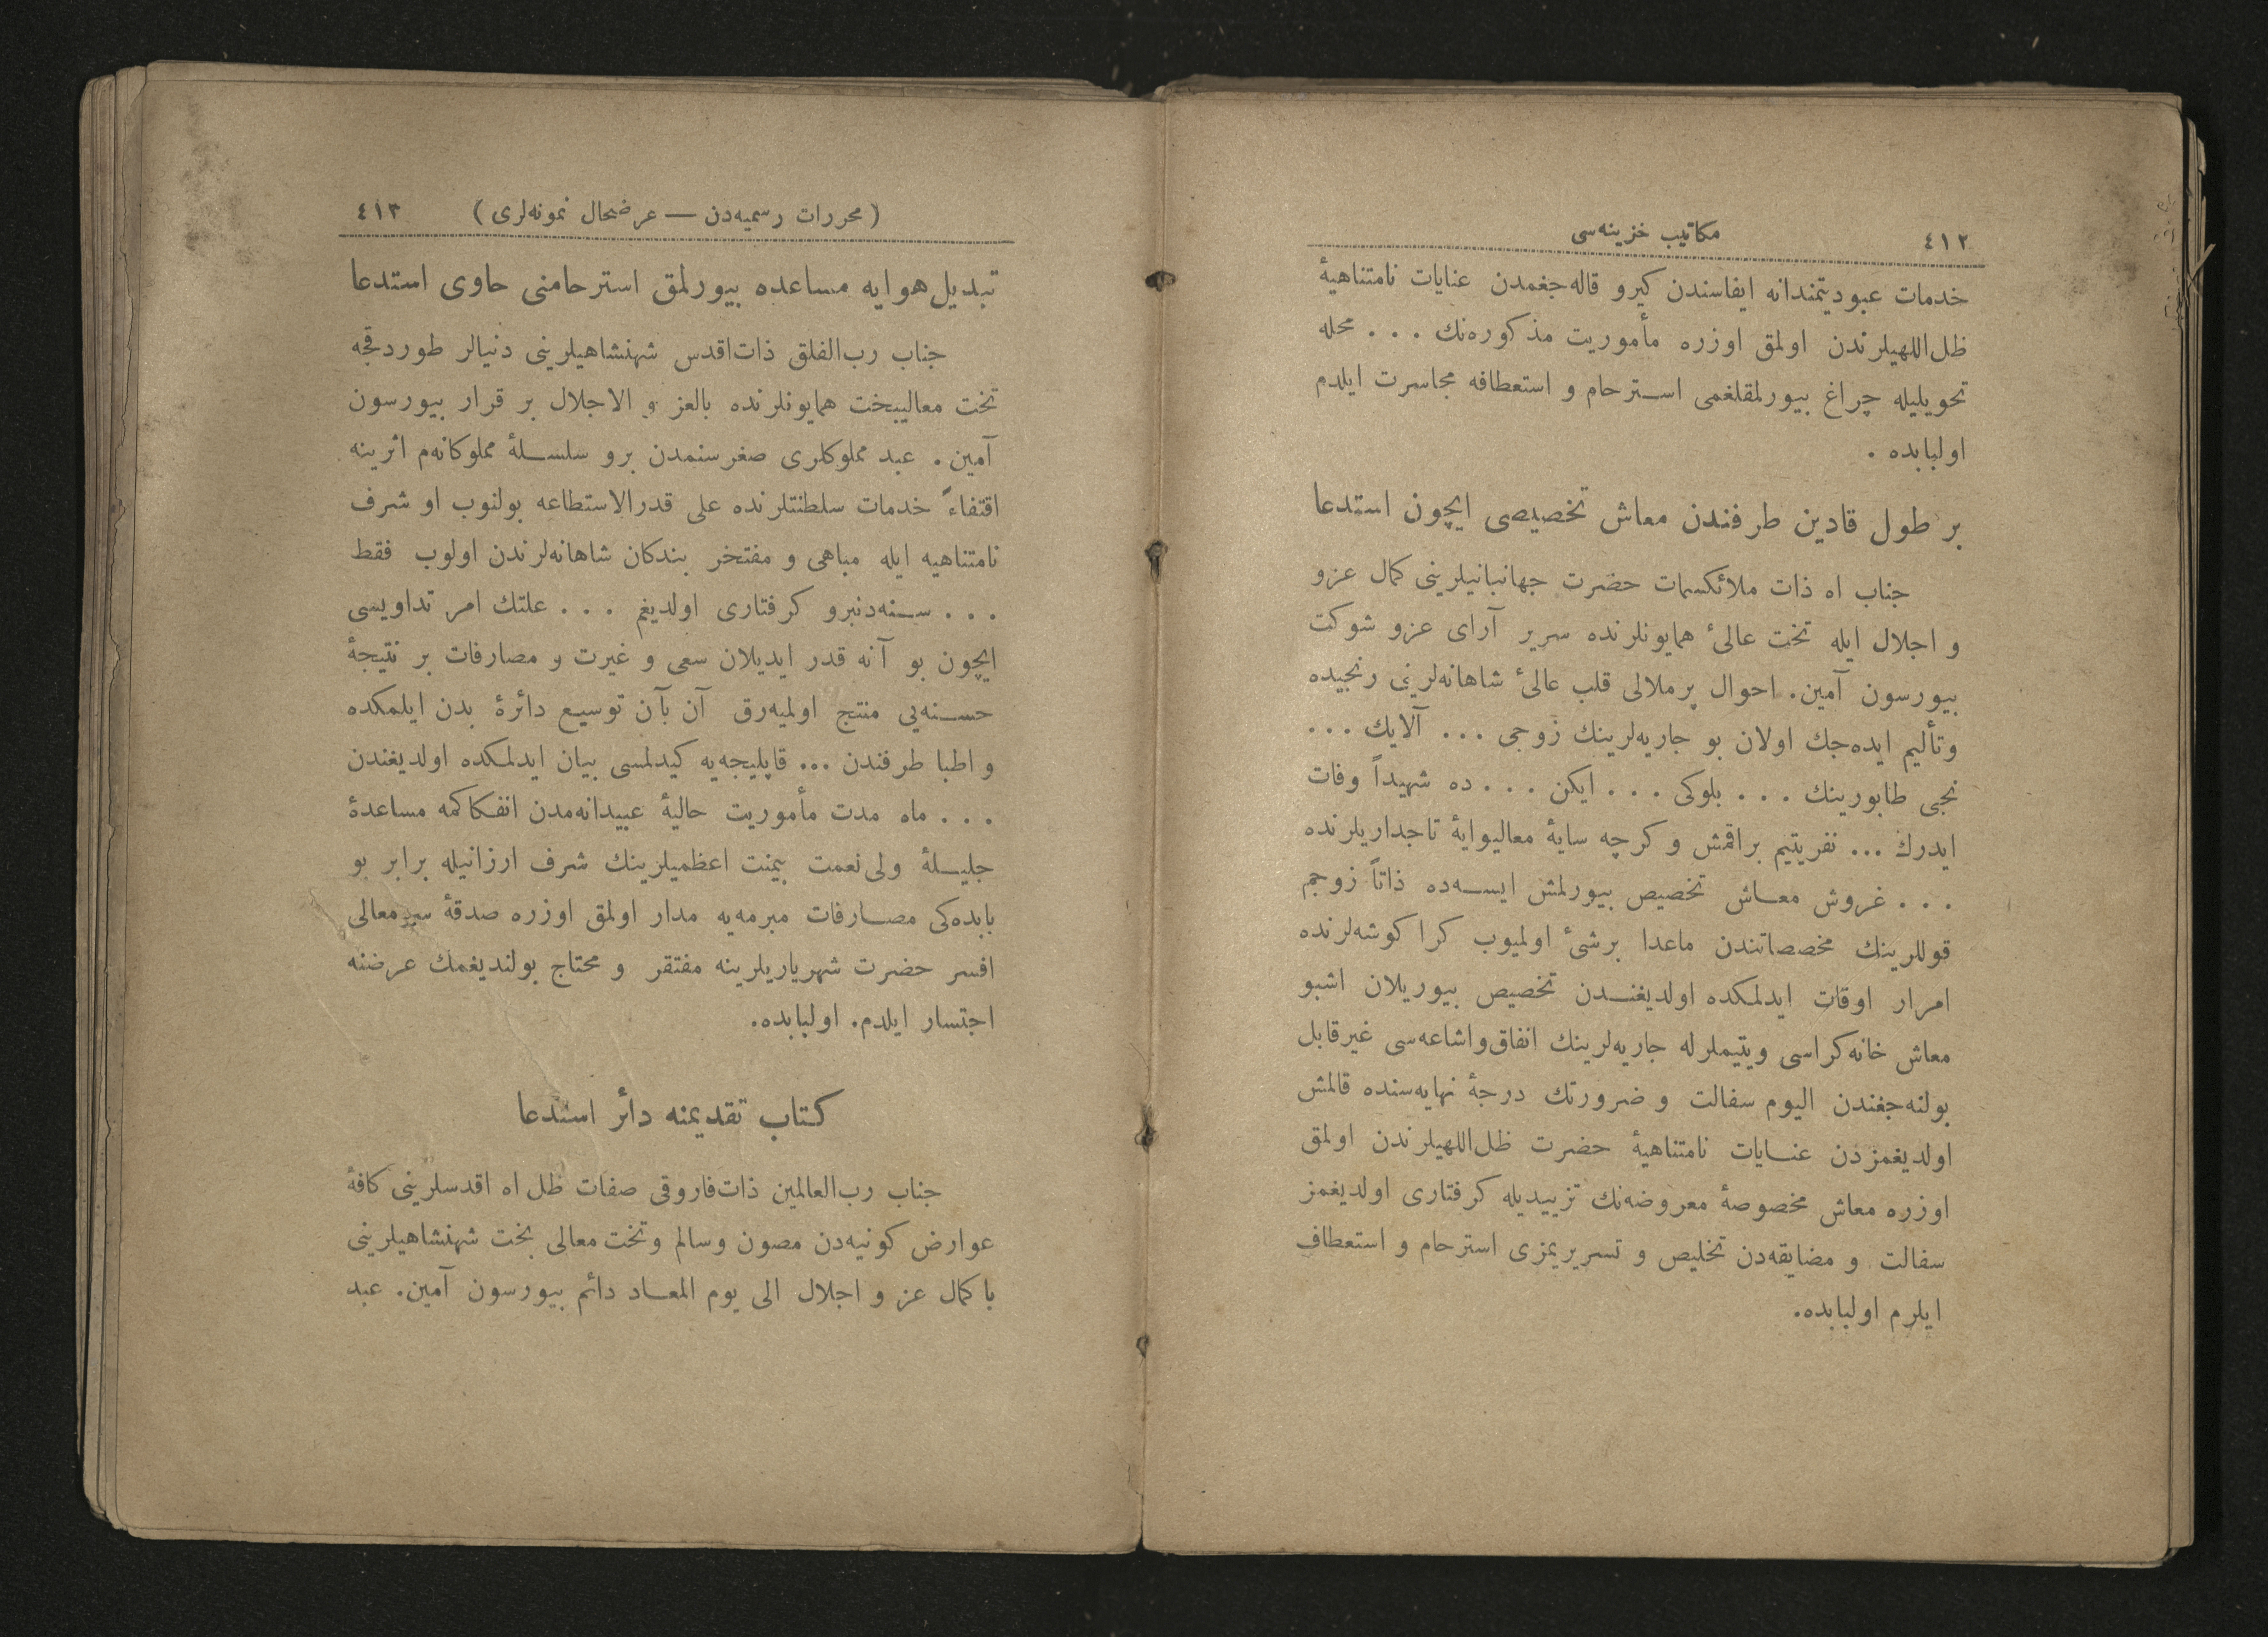 ٤١٢
مكاتيب خزينه‌سى
خدمات عبوديتمندانه ايفاسندن كيرو قاله‌جغمدن عنايات نامتناهيهٔ
ظل‌اللهيلرندن اولمق اوزره مأموريت مذكوره‌نك . . . محله
تحويليله چراغ بيورلمقلغمى استرحام و استعطافه مجاسرت ايلدم
اولبابده .
بر طول قادين طرفندن معاش تخصيصى ايچون استدعا
جناب اه ذات ملائكسمات حضرت جهانبانيلرينى كمال عزو
و اجلال ايله تخت عالىٔ همايونلرنده سرير آراى عزو شوكت
بيورسون آمين. احوال پرملالى قلب عالىٔ شاهانه‌لرينى رنجيده
وتأليم ايده‌جك اولان بو جاريه‌لرينك زوجى ... آلايك ...
نجى طابورينك . . . بلوكى . . . ايكن . . . ده شهيداً وفات
ايدرك ... نفريتيم براقمش و كرچه سايهٔ معاليوايهٔ تاجداريلرنده
. . . غروش معاش تخصيص بيورلمش ايسه‌ده ذاتاً زوجم
قوللرينك مخصصاتندن ماعدا برشىٔ اولميوب كرا كوشه‌لرنده
امرار اوقات ايدلمكده اولديغندن تخصيص بيوريلان اشبو
معاش خانه‌كراسى ويتيملرله جاريه‌لرينك انفاق‌واشاعه‌سى غيرقابل
بولنه‌جغندن اليوم سفالت و ضرورتك درجهٔ نهايه‌سنده قالمش
اولديغمزدن عنايات نامتناهيهٔ حضرت ظل‌اللهيلرندن اولمق
اوزره معاش مخصوصهٔ معروضه‌نك تزييديله كرفتارى اولديغمز
سفالت و مضايقه‌دن تخليص و تسريريمزى استرحام و استعطاف
ايلرم اولبابده.
(محررات رسميه‌دن — عرضحال نمونه‌لرى)
٤١٣
تبديل‌هوايه مساعده بيورلمق استرحامنى حاوى استدعا
جناب رب‌الفلق ذات‌اقدس شهنشاهيلرينى دنيالر طوردقجه
تخت معاليبخت همايونلرنده بالعز و الاجلال بر قرار بيورسون
آمين. عبد مملوكلرى صغرسنمدن برو سلسلهٔ مملوكانه‌م اثرينه
اقتفاءً خدمات سلطنتلرنده على قدرالاستطاعه بولنوب او شرف
نامتناهيه ايله مباهى و مفتخر بندكان شاهانه‌لرندن اولوب فقط
. . . سنه‌دنبرو كرفتارى اولديغم . . . علتك امر تداويسى
ايچون بو آنه قدر ايديلان سعى و غيرت و مصارفات بر نتيجهٔ
حسنه‌يى منتج اولميه‌رق آن بآن توسيع دائرهٔ بدن ايلمكده
و اطبا طرفندن ... قاپليجه‌يه كيدلمسى بيان ايدلمكده اولديغندن
. . . ماه مدت مأموريت حاليهٔ عبيدانه‌مدن انفكاكمه مساعدهٔ
جليلهٔ ولى‌نعمت بيمنت اعظميلرينك شرف ارزانيله برابر بو
بابده‌كى مصارفات مبرمه‌يه مدار اولمق اوزره صدقهٔ سرمعالى
افسر حضرت شهرياريلرينه مفتقر و محتاج بولنديغمك عرضنه
اجتسار ايلدم. اولبابده.
كتاب تقديمنه دائر استدعا
جناب رب‌العالمين ذات‌فاروقى صفات ظل اه اقدسلرينى كافهٔ
عوارض كونيه‌دن مصون وسالم وتخت معالى بخت شهنشاهيلرينى
با كمال عز و اجلال الى يوم المعاد دائم بيورسون آمين. عبد